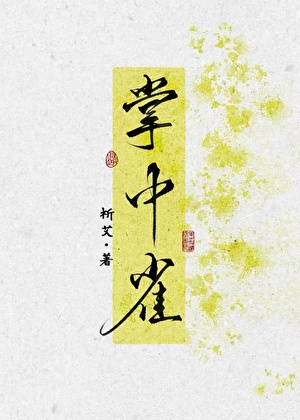 掌中雀
析艾·著